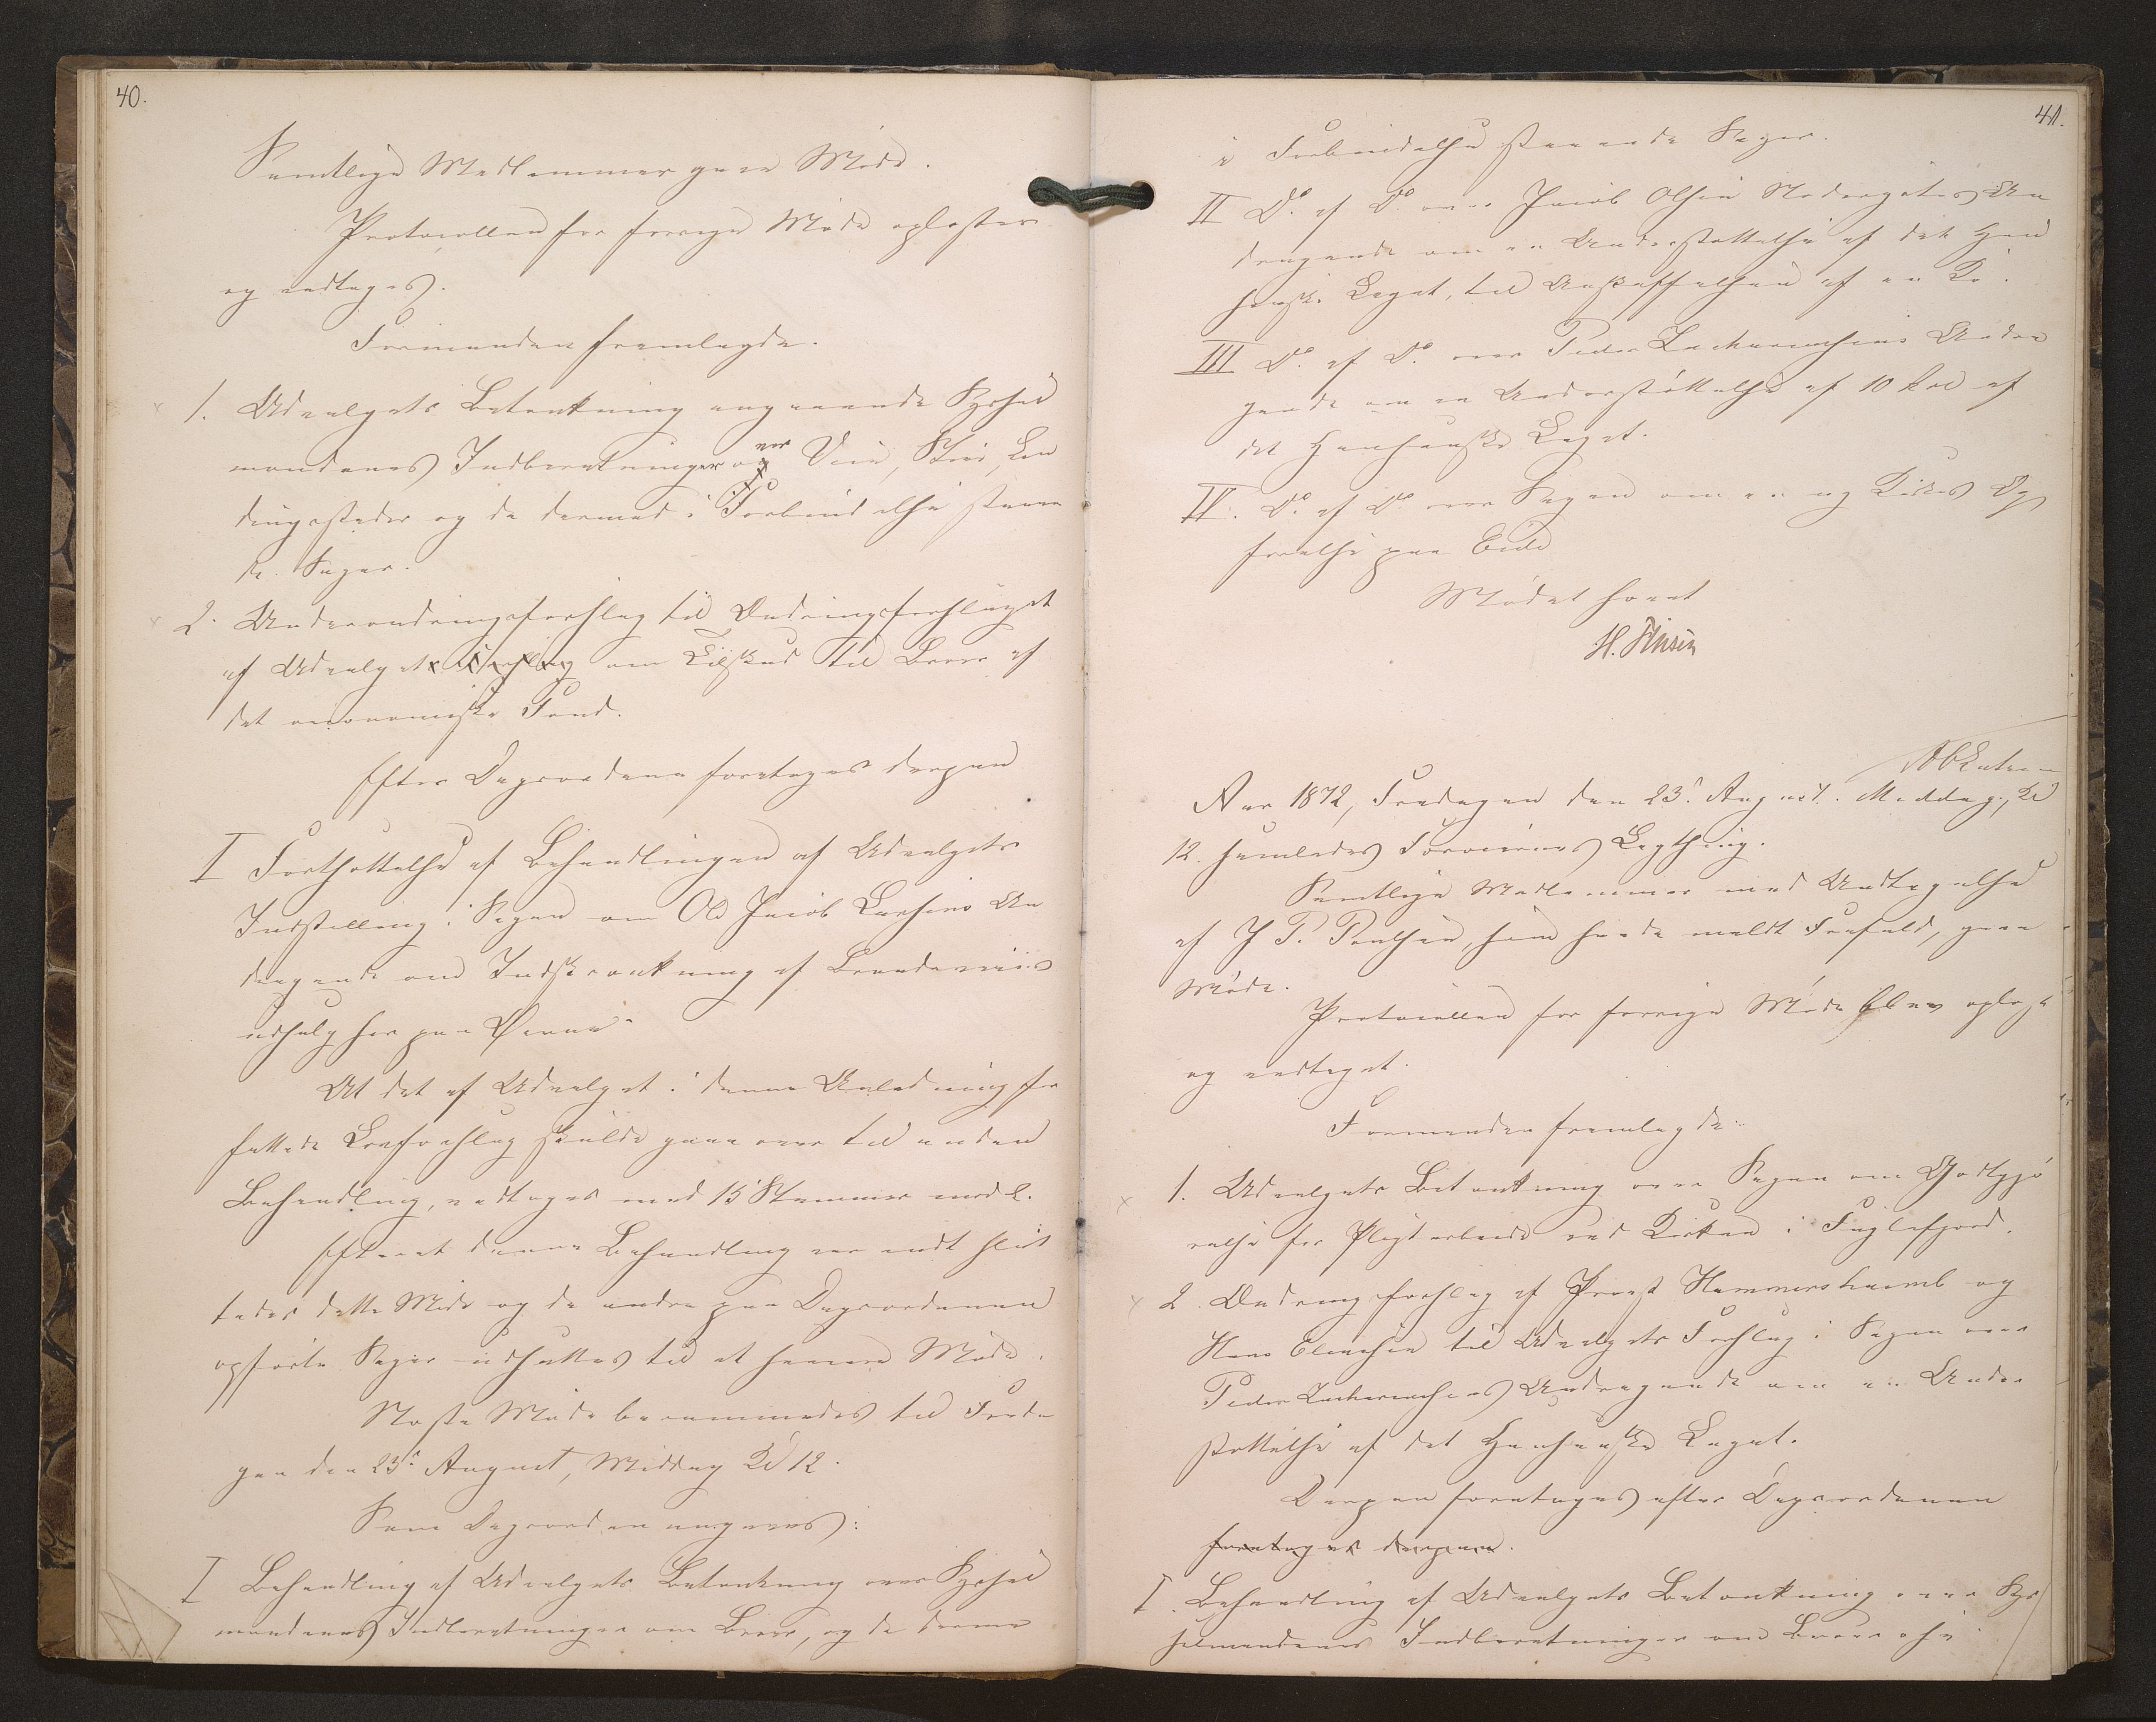 40.
Samtlige Medlemmer gave Møde.
Protocollen for forrige Møde oplæstes
og vedtoges.
Formanden fremlagde.
1. Udvalgets Betænkning angaaende Syssel
mændenes Indberetninger over Veie, Stier, Lan
dingssteder og de dermed i Forbindelse staaen
de Sager.
2. Underændringsforslag til Ændringsforslaget
af Udvalget om Tilskud til Broer af
det oeconomiske Fond.
Efter Dagsordenen foretoges derpaa
I Fortsættelse af Behandlingen af Udvalgets
Indstilling i Sagen om Ole Jacob Larsens An
dragende om Indskrænkning af Brændeviins
udsalg her paa Øerne.
At det af Udvalget i denne Anledning for
fattede Lovforslag skulde gaae over til anden
Behandling, vedtoges med 15 Stemmer mod 2.
Efterat denne Behandling var endt slut
tedes dette Møde og de andre paa Dagsordenen
opførte Sager udsattes til et senere Møde.
Næste Møde berammedes til Freda
gen den 23de August, Middag Kl 12.
Som Dagsorden angaves:
I Behandling af Udvalgets Betænkning over Syssel
mændenes Indberetninger om Broer, og de derme
41.
i Forbindelse staaende Sager.
II Do. af Do. over Jacob Olsen Nordregötes An
dragende om en Understøttelse af det Han
senske Legat, til Anskaffelsen af en Ko.
III Do. af Do. over Peder Zachariasens Andra
gende om en Understøttelse af 10 Rd af
det Hansenske Legat.
IV. Do. af Do. over Sagen om en ny Kirkes Op
førelse paa Eide
Mødet hævet
H.
Aar 1872, Fredagen den 23de August. Middag, Kl
12. samledes Færøernes Lagthing.
Samtlige Medlemmer med Undtagelse
af J P. Poulsen, som havde meldt Forfald, gave
Møde.
Protocollen for forrige Møde blev oplæst
og vedtaget.
Formanden fremlagde:
1. Udvalgets Betænkning over Sagen om Godtgjø
relse for Pligtarbeide ved Kirken i Fuglefjord.
2. Ændringsforslag af Provst Hammershaimb og
Hans til Udvalgets Forslag i Sagen over
Peder Zachariasens Andragende om en Under
støttelse af det Hansenske Legat.
Derpaa foretoges efter Dagsordenen
foretoges derpaa.
I. Behandling af Udvalgets Betænkning over Sys
selmændenes Indberetninger om Broer